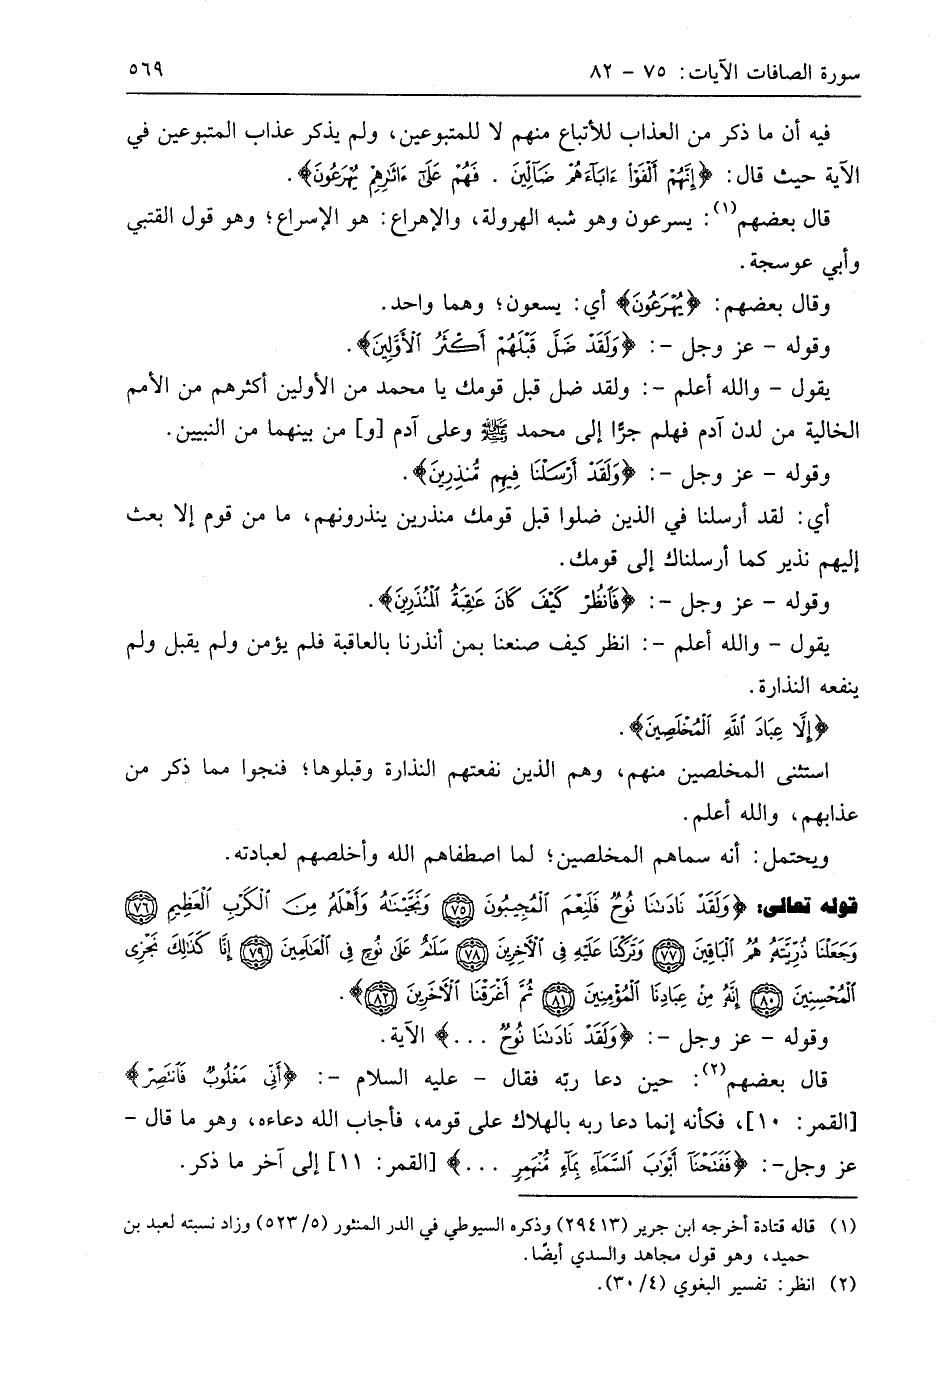 سورة الصافات الآيات: ٧٥ - ٨٢ ٥٦٩
فيه أن ما ذكر من العذاب للأتباع منهم لا للمتبوعين، ولم يذكر عذاب المتبوعين في
الآية حيث قال: ﴿إِنَّهُمْ أَلْفَوْا ءَابَآءَهُمْ ضَآلِّينَ . فَهُمْ عَلَىٰٓ ءَاثَٰرِهِمْ يُهْرَعُونَ﴾.
قال بعضهم(١): يسرعون وهو شبه الهرولة، والإهراع: هو الإسراع؛ وهو قول القتبي
وأبي عوسجة.
وقال بعضهم: ﴿يُهْرَعُونَ﴾ أي: يسعون؛ وهما واحد.
وقوله - عز وجل -: ﴿وَلَقَدْ ضَلَّ قَبْلَهُمْ أَكْثَرُ ٱلْأَوَّلِينَ﴾.
يقول - والله أعلم -: ولقد ضل قبل قومك يا محمد من الأولين أكثرهم من الأمم
الخالية من لدن آدم فهلم جرًّا إلى محمد ﷺ وعلى آدم [و] من بينهما من النبيين.
وقوله - عز وجل -: ﴿وَلَقَدْ أَرْسَلْنَا فِيهِم مُّنذِرِينَ﴾.
أي: لقد أرسلنا في الذين ضلوا قبل قومك منذرين ينذرونهم، ما من قوم إلا بعث
إليهم نذير كما أرسلناك إلى قومك.
وقوله - عز وجل -: ﴿فَٱنظُرْ كَيْفَ كَانَ عَٰقِبَةُ ٱلْمُنذَرِينَ﴾.
يقول - والله أعلم -: انظر كيف صنعنا بمن أنذرنا بالعاقبة فلم يؤمن ولم يقبل ولم
ينفعه النذارة.
﴿إِلَّا عِبَادَ ٱللَّهِ ٱلْمُخْلَصِينَ﴾.
استثنى المخلصين منهم، وهم الذين نفعتهم النذارة وقبلوها؛ فنجوا مما ذكر من
عذابهم، والله أعلم.
ويحتمل: أنه سماهم المخلصين؛ لما اصطفاهم الله وأخلصهم لعبادته.
قوله تعالى: ﴿وَلَقَدْ نَادَىٰنَا نُوحٌ فَلَنِعْمَ ٱلْمُجِيبُونَ (٧٥) وَنَجَّيْنَٰهُ وَأَهْلَهُۥ مِنَ ٱلْكَرْبِ ٱلْعَظِيمِ (٧٦)
وَجَعَلْنَا ذُرِّيَّتَهُۥ هُمُ ٱلْبَاقِينَ (٧٧) وَتَرَكْنَا عَلَيْهِ فِى ٱلْأَخِرِينَ (٧٨) سَلَٰمٌ عَلَىٰ نُوحٍ فِى ٱلْعَٰلَمِينَ (٧٩) إِنَّا كَذَٰلِكَ نَجْزِى
ٱلْمُحْسِنِينَ (٨٠) إِنَّهُۥ مِنْ عِبَادِنَا ٱلْمُؤْمِنِينَ (٨١) ثُمَّ أَغْرَقْنَا ٱلْأَخَرِينَ (٨٢)﴾.
وقوله - عز وجل -: ﴿وَلَقَدْ نَادَىٰنَا نُوحٌ ...﴾ الآية.
قال بعضهم(٢): حين دعا ربّه فقال - عليه السلام -: ﴿أَنِّى مَغْلُوبٌ فَٱنتَصِرْ﴾
[القمر: ١٠]، فكأنه إنما دعا ربه بالهلاك على قومه، فأجاب الله دعاءه، وهو ما قال -
عز وجل-: ﴿فَفَتَحْنَآ أَبْوَٰبَ ٱلسَّمَآءِ بِمَآءٍ مُّنْهَمِرٍ ...﴾ [القمر: ١١] إلى آخر ما ذكر.
(١) قاله قتادة أخرجه ابن جرير (٢٩٤١٣) وذكره السيوطي في الدر المنثور (٥/٥٢٣) وزاد نسبته لعبد بن
حميد، وهو قول مجاهد والسدي أيضًا.
(٢) انظر: تفسير البغوي (٤/٣٠).